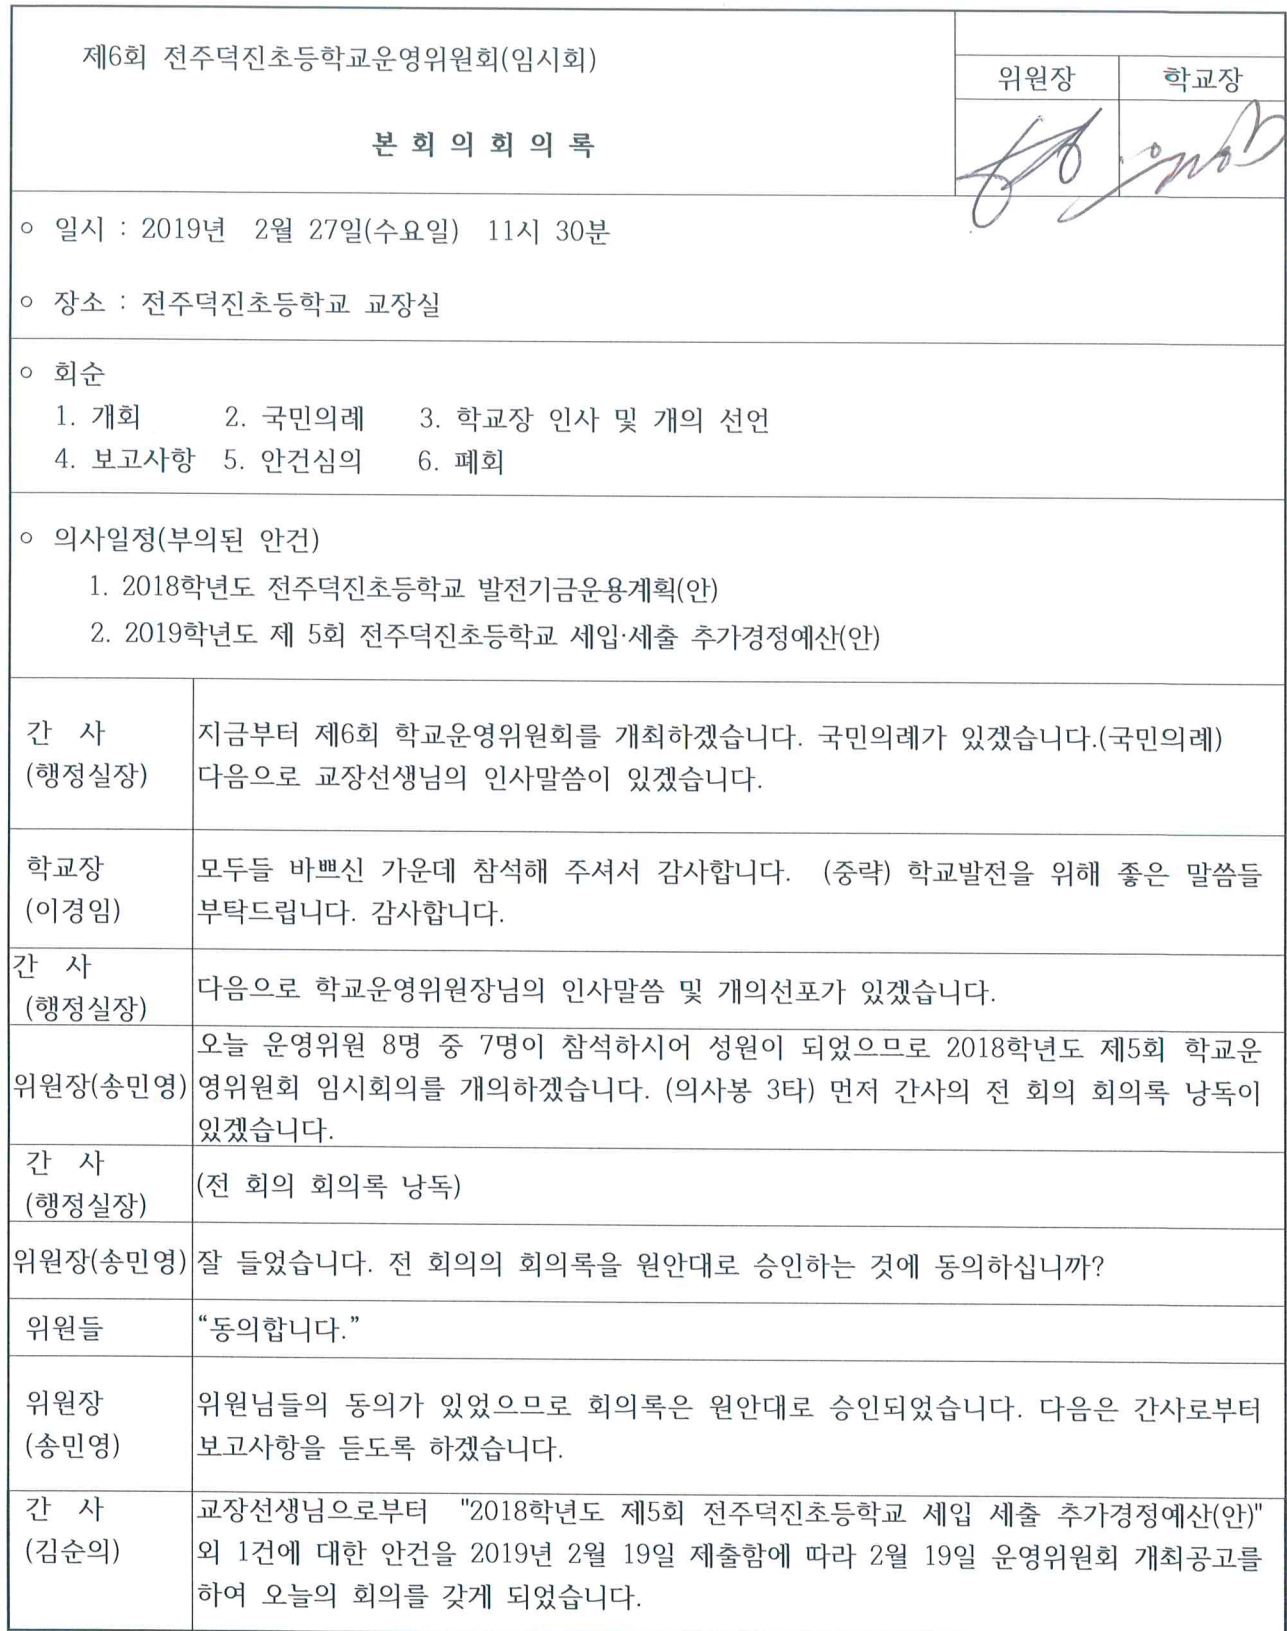 제6회 전주덕진초등학교운영위원회(임시회)
위원장 학교장
본 회 의 회 의 록
○ 일시 : 2019년 2월 27일(수요일) 11시 30분
○ 장소 : 전주덕진초등학교 교장실
○ 회순
1. 개회 2. 국민의례 3. 학교장 인사 및 개의 선언
4. 보고사항 5. 안건심의 6. 폐회
○ 의사일정(부의된 안건)
1. 2018학년도 전주덕진초등학교 발전기금운용계획(안)
2. 2019학년도 제 5회 전주덕진초등학교 세입·세출 추가경정예산(안)
간 사
(행정실장)
지금부터 제6회 학교운영위원회를 개최하겠습니다. 국민의례가 있겠습니다.(국민의례)
다음으로 교장선생님의 인사말씀이 있겠습니다.
학교장
(이경임)
모두들 바쁘신 가운데 참석해 주셔서 감사합니다. (중략) 학교발전을 위해 좋은 말씀들
부탁드립니다. 감사합니다.
간 사
(행정실장)
다음으로 학교운영위원장님의 인사말씀 및 개의선포가 있겠습니다.
위원장(송민영)
오늘 운영위원 8명 중 7명이 참석하시어 성원이 되었으므로 2018학년도 제5회 학교운
영위원회 임시회의를 개의하겠습니다. (의사봉 3타) 먼저 간사의 전 회의 회의록 낭독이
있겠습니다.
간 사
(행정실장)
(전 회의 회의록 낭독)
위원장(송민영)
잘 들었습니다. 전 회의의 회의록을 원안대로 승인하는 것에 동의하십니까?
위원들
“동의합니다.”
위원장
(송민영)
위원님들의 동의가 있었으므로 회의록은 원안대로 승인되었습니다. 다음은 간사로부터
보고사항을 듣도록 하겠습니다.
간 사
(김순의)
교장선생님으로부터 "2018학년도 제5회 전주덕진초등학교 세입 세출 추가경정예산(안)"
외 1건에 대한 안건을 2019년 2월 19일 제출함에 따라 2월 19일 운영위원회 개최공고를
하여 오늘의 회의를 갖게 되었습니다.